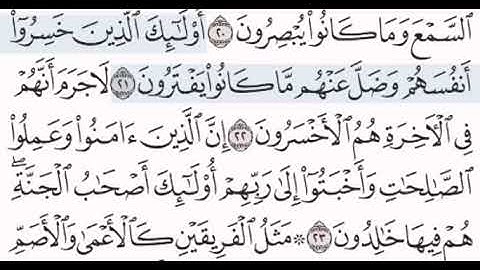 ٱلسَّمۡعَ وَمَا كَانُواْ يُبۡصِرُونَ ٢٠ أُوْلَٰٓئِكَ ٱلَّذِينَ خَسِرُوٓاْ
أَنفُسَهُمۡ وَضَلَّ عَنۡهُم مَّا كَانُواْ يَفۡتَرُونَ ٢١ لَا جَرَمَ أَنَّهُمۡ
فِي ٱلۡأٓخِرَةِ هُمُ ٱلۡأَخۡسَرُونَ ٢٢ إِنَّ ٱلَّذِينَ ءَامَنُواْ وَعَمِلُواْ
ٱلصَّٰلِحَٰتِ وَأَخۡبَتُوٓاْ إِلَىٰ رَبِّهِمۡ أُوْلَٰٓئِكَ أَصۡحَٰبُ ٱلۡجَنَّةِۖ
هُمۡ فِيهَا خَٰلِدُونَ ٢٣ ۞ مَثَلُ ٱلۡفَرِيقَيۡنِ كَٱلۡأَعۡمَىٰ وَٱلۡأَصَمِّ